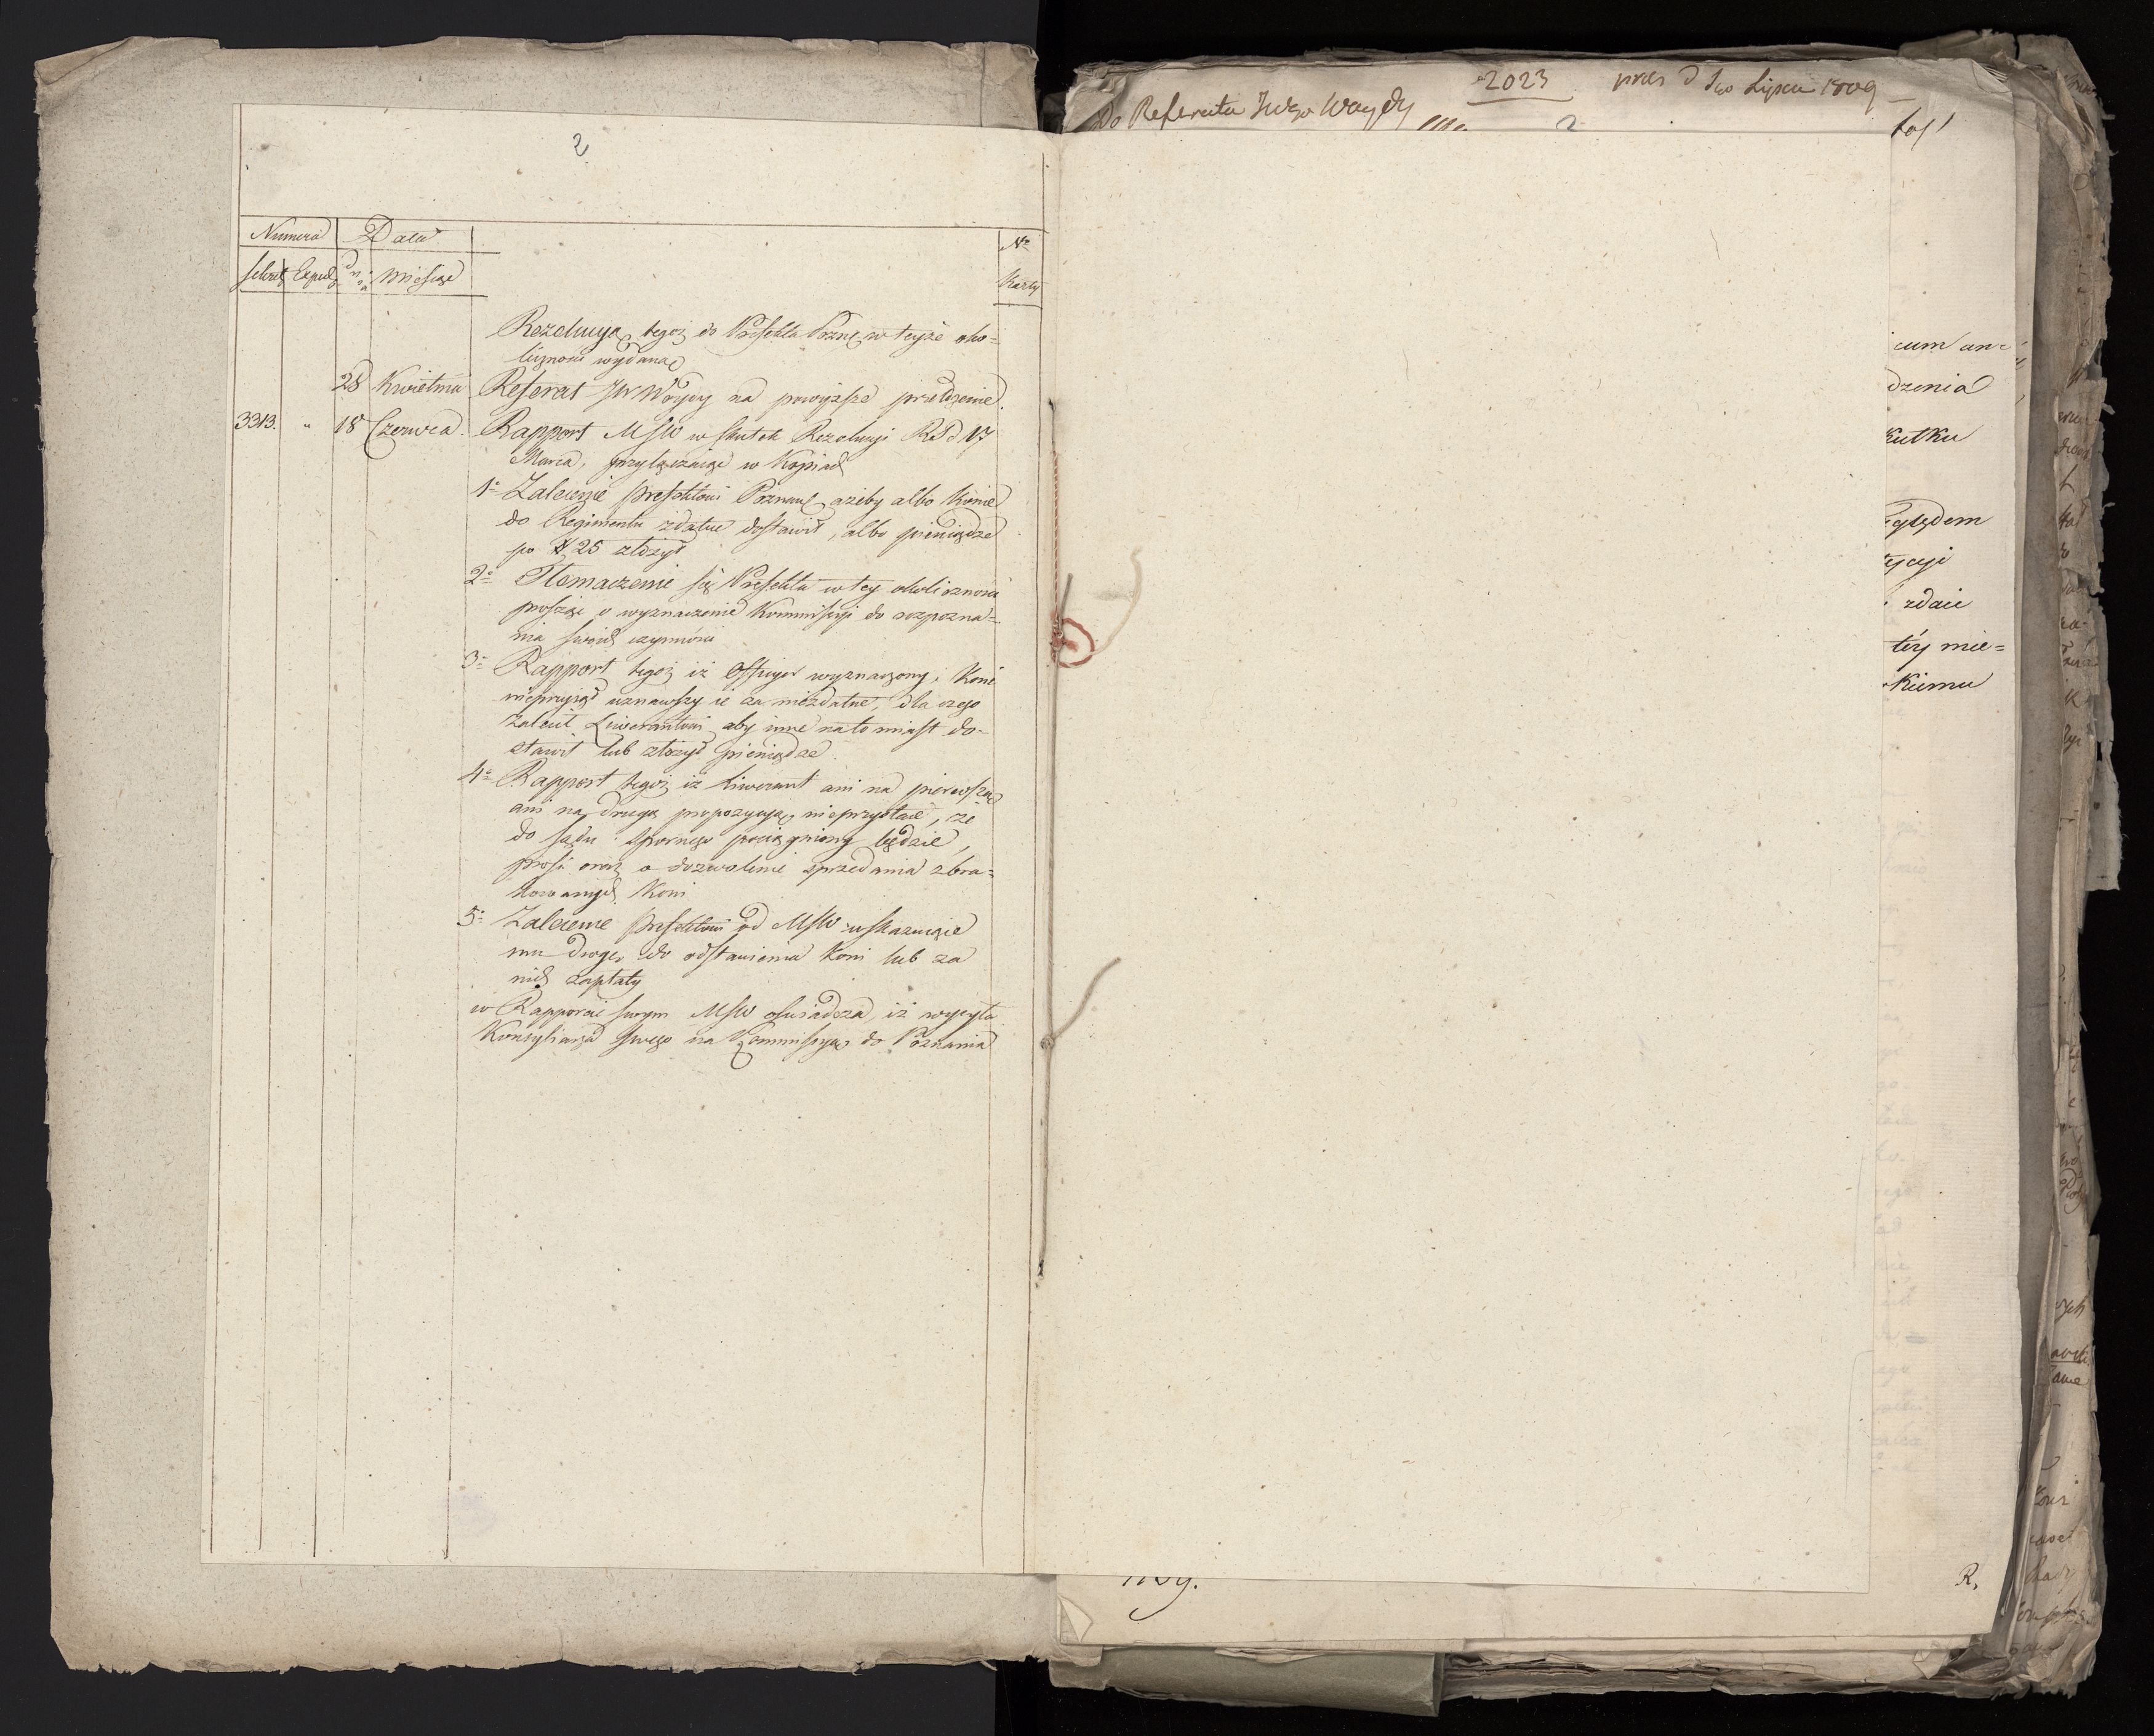 2
Numera Data
Sekret Exped dnia Miesiąc
Nro
Karty
Rezolucya tegoż do Prefekta Pozng w teyże oko=
liczności wydana
28 Kwietnia Referat JW Woydy na powyższe przełożenie.
3313. " 18 Czerwca. Rapport MSW w skutek Rezolucyi RS d 17
Marca, przyłączaiąc w Kopiach
1o Zalecenie Prefektowi Poznans, ażeby albo Konie
do Regimentu zdatne dostawił, albo pieniądze
po # 25 złożył
2o Tłomaczenie się Prefekta w tey okoliczności
prosząc o wyznaczenie Kommissyi do rozpozna=
nia swoich czynności
3o Rapport tegoż iż Officyer wyznaczony, Koni
nieprzyiął uznawszy ie za niezdatne, dla czego
zalecił Liwerantowi aby inne natomiast do=
stawił lub złożył pieniądze
4o Rapport tegoż iż Liwerant ani na pierwszą
ani na drugą propozycyą nieprzystaie, że
do sądu spornego pociągniony będzie,
prosi oraz o dozwolenie sprzedania zbra=
kowanych Koni
5o Zalecenie Prefektowi od MSW wskazuiące
mu drogę do odstawienia Koni lub za
nich zapłaty
w Rapporcie swym MSW oświadcza, iż wysyła
Konsyliarza swego na Kommissyą do Poznania
Do Referatu JWgo Woydy
2023 praes d 1go Lipca 1809
2
tość
cum an=
dzenia
kutku
ględem
tycyi
zdaie
téy mie=
kiemu
R.